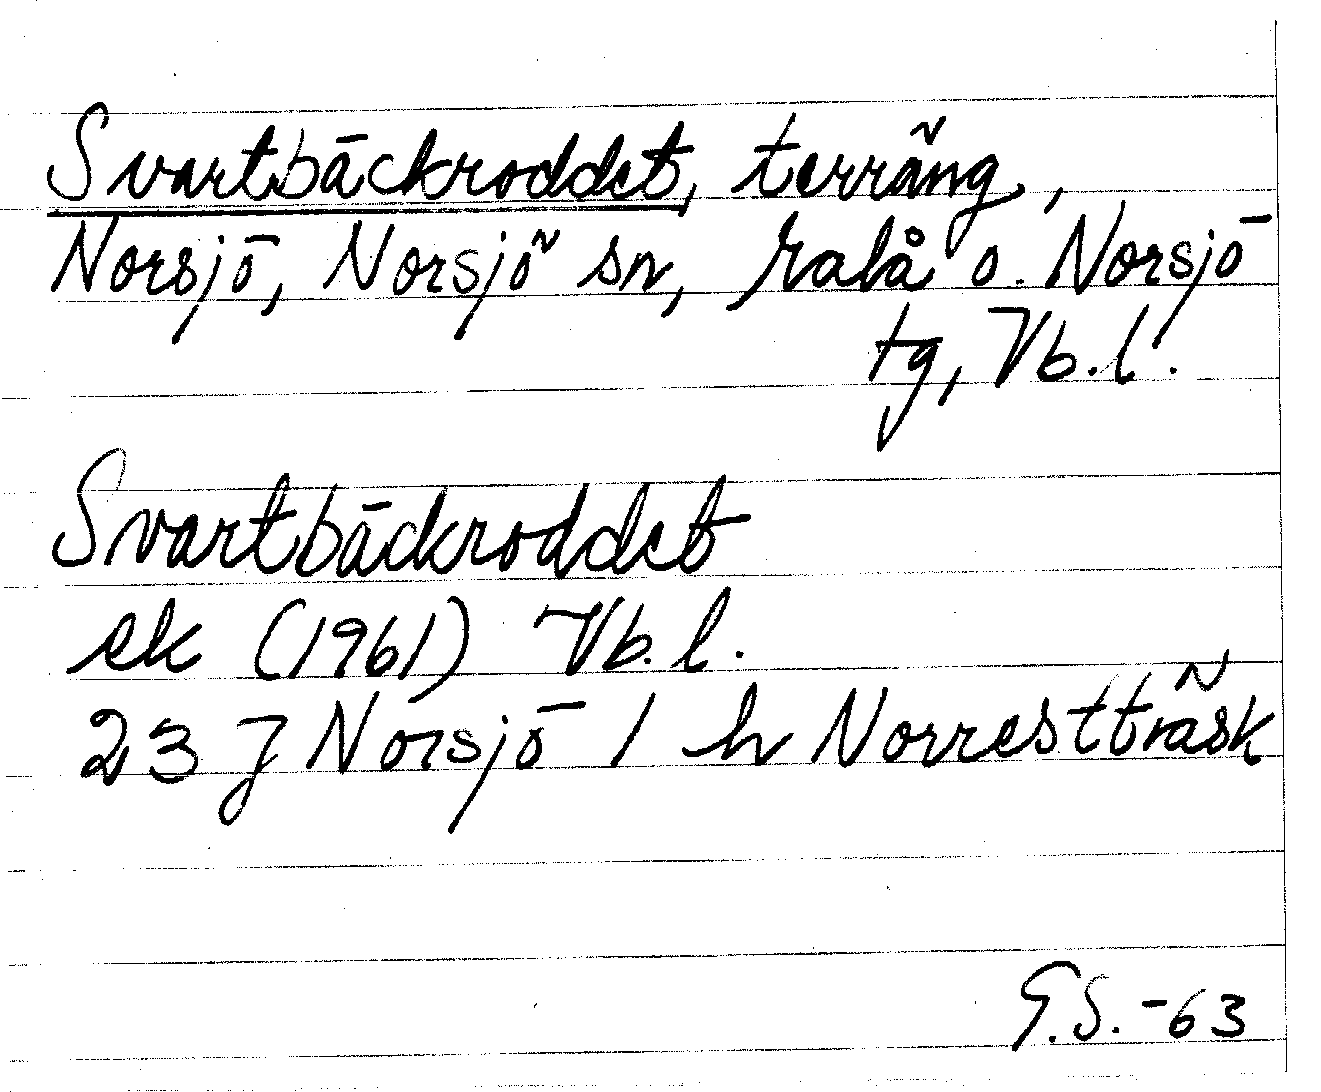 Svartbäckroddet, terräng,
Norsjö, Norsjö sn, Malå o. Norsjö
tg, Vb.l.
Svartbäckroddet
ek (1961) Vb.l.
23 J Norsjö 1 h Norrestträsk
G.S. -63